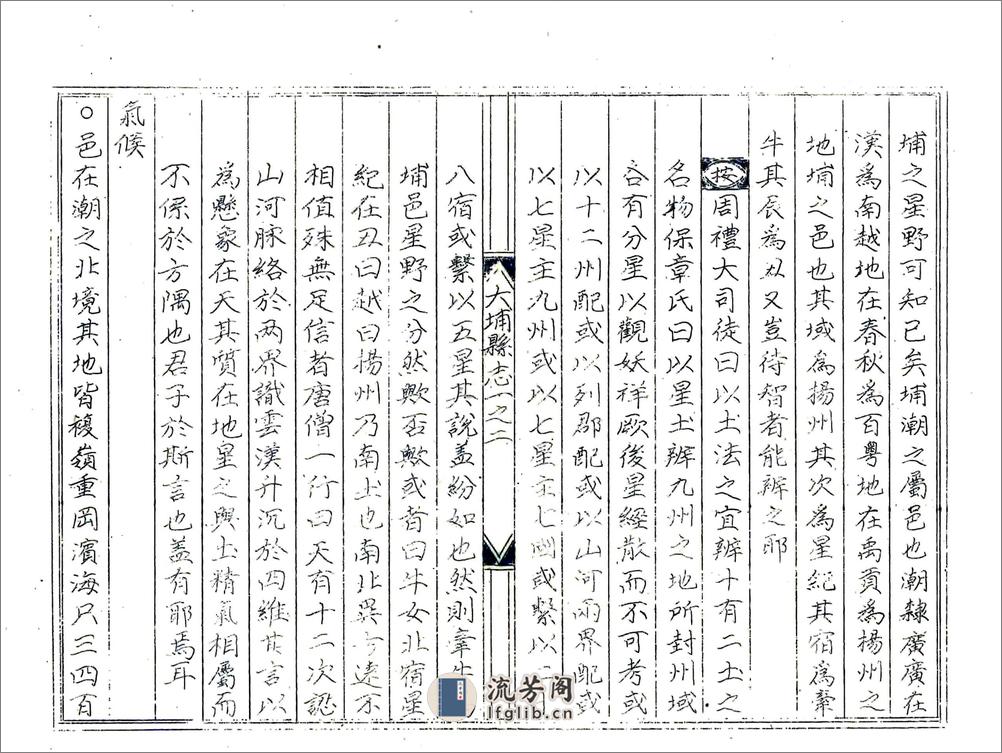 埔之星野可知已矣埔潮之屬邑也潮隸廣廣在
漢為南越地在春秋為百粵地在禹貢為揚州之
地埔之邑也其域為揚州其次為星紀其宿為牽
牛其辰為丑又豈待智者能辨之耶
按周禮大司徒曰以土法之宜辨十有二土之
名物保章氏曰以星土辨九州之地所封州域
各有分星以觀妖祥厥後星經散而不可考或
以十二州配或以列郡配或以山河兩界配或
以七星主九州或以七星主七國或繫以二
大埔縣志一之二
八宿或繫以五星其說盖紛如也然則牽牛
埔邑星野之分然歟否歟或者曰牛女北宿星
紀在丑曰越曰揚州乃南土也南北異方遠不
相值殊無足信者唐僧一行曰天有十二次認
山河脉絡於两界識雲漢升沉於四維其言以
為懸象在天其質在地星之與土精氣相屬而
不係於方隅也君子於斯言也盖有耶焉耳
氣候
○邑在潮之北境其地皆複嶺重岡濱海只三四百
流芳阁
lfglib.cn